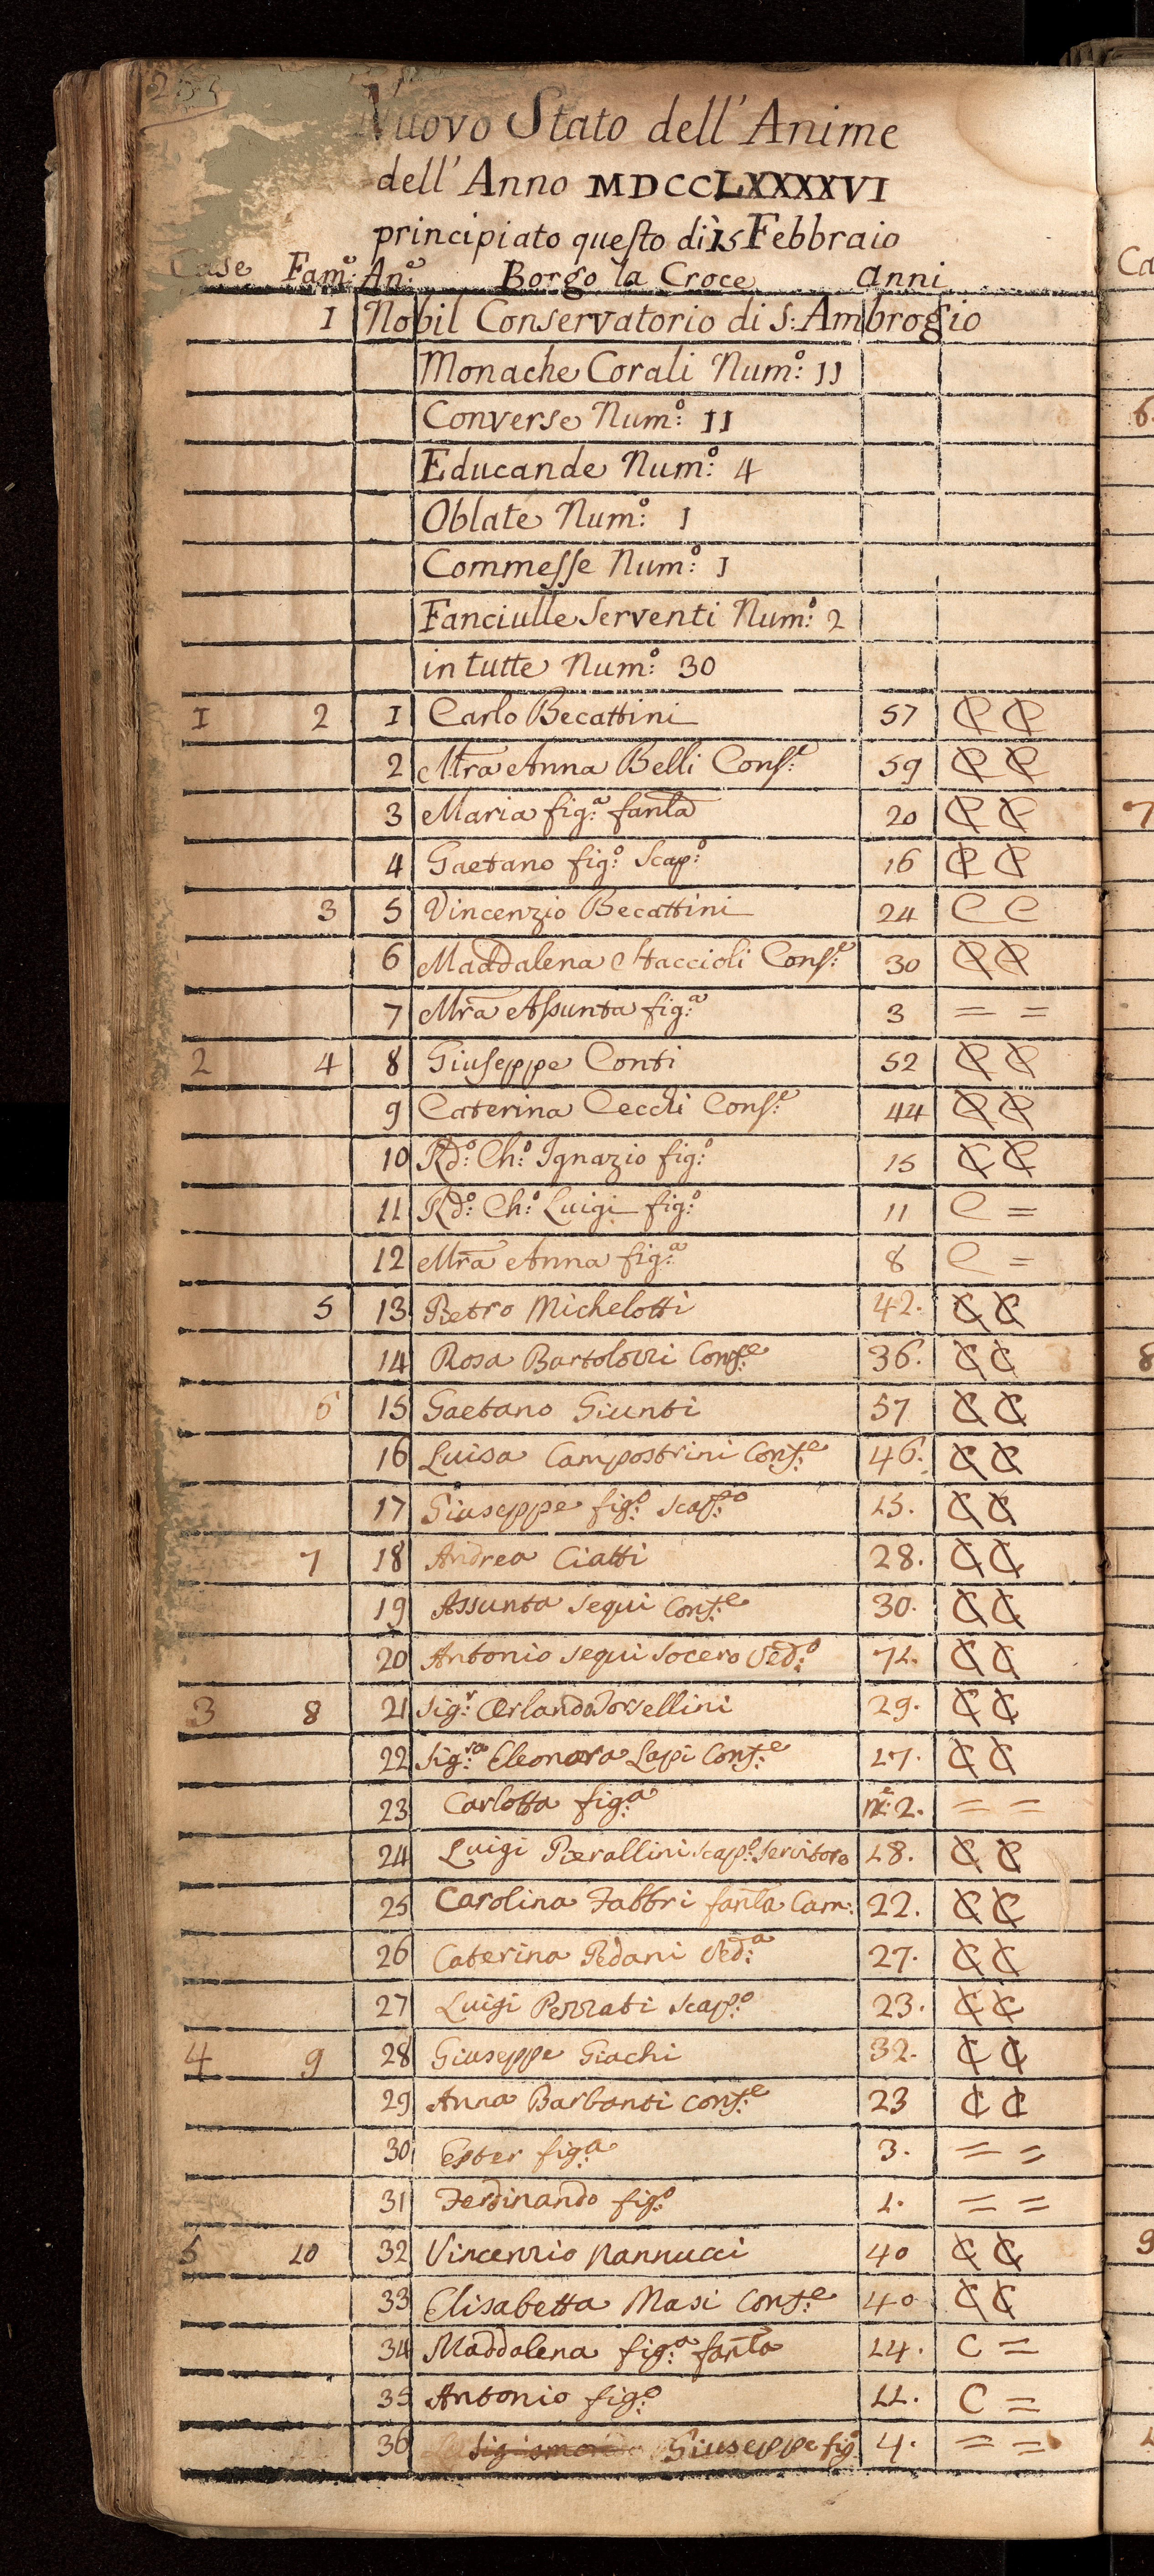 Nuovo Stato dell'Anime
dell'Anno MDCCLXXXXVI
principiato questo dì 15 Febbraio
Case Fam: An: Borgo la Croce anni
1 Nobil Conservatorio di S: Ambrogio
Monache Corali Num:º 11
Converse Num:º 11
Educande Num:º 4
Oblate Num:º 1
Commesse Num:º 1
Fanciulle Serventi Num:º 2
in tutte Num:º 30
1 2 1 Carlo Becattini 57 C C
2 Mra Anna Belli Cons:e 59 C C
3 Maria fig:a fanla 20 C C
4 Gaetano fig:o Scap:o 16 C C
3 5 Vincenzio Becattini 24 C C
6 Maddalena Staccioli Cons:e 30 C C
7 Mra Assunta fig:a 3 = =
2 4 8 Giuseppe Conti 52 C C
9 Caterina Cecchi Cons:e 44 C C
10 Rd:o Ch:o Ignazio fig:o 15 C C
11 Rd:o Ch:o Luigi fig:o 11 C =
12 Mra Anna fig:a 8 C =
5 13 Pietro Michelotti 42. C C
14 Rosa Cons:e 36. C C
6 15 Gaetano Giunti 57 C C
16 Luisa Campostrini Cons:e 46. C C
17 Giuseppe fig:o scap:o 15. C C
7 18 Andrea Ciatti 28. C C
19 Assunta Sequi Cons:e 30. C C
20 Antonio Sequi Socero Ved:o 71. C C
3 8 21 Sig:r Orlando 29. C C
22 Sig:ra Eleonora Lapi Cons:e 27. C C
23 Carlotta fig:a 2. = =
24 Luigi Pierallini scap:o Servitore 28. C C
25 Carolina Fabbri fanla Cam: 22. C C
26 Caterina Pedani Ved:a 27. C C
27 Luigi scap:o 23. C C
4 9 28 Giuseppe Giachi 32. C C
29 Anna Barbanti Cons:e 23 C C
30 Ester fig:a 3. = =
31 Ferdinando fig:o 1. = =
5 10 32 Vincenzio Nannucci 40 C C
33 Elisabetta Masi Cons:e 40 C C
34 Maddalena fig:a fanla 14. C =
35 Antonio fig:o 11. C =
36 Giuseppe fig:o 4. = =